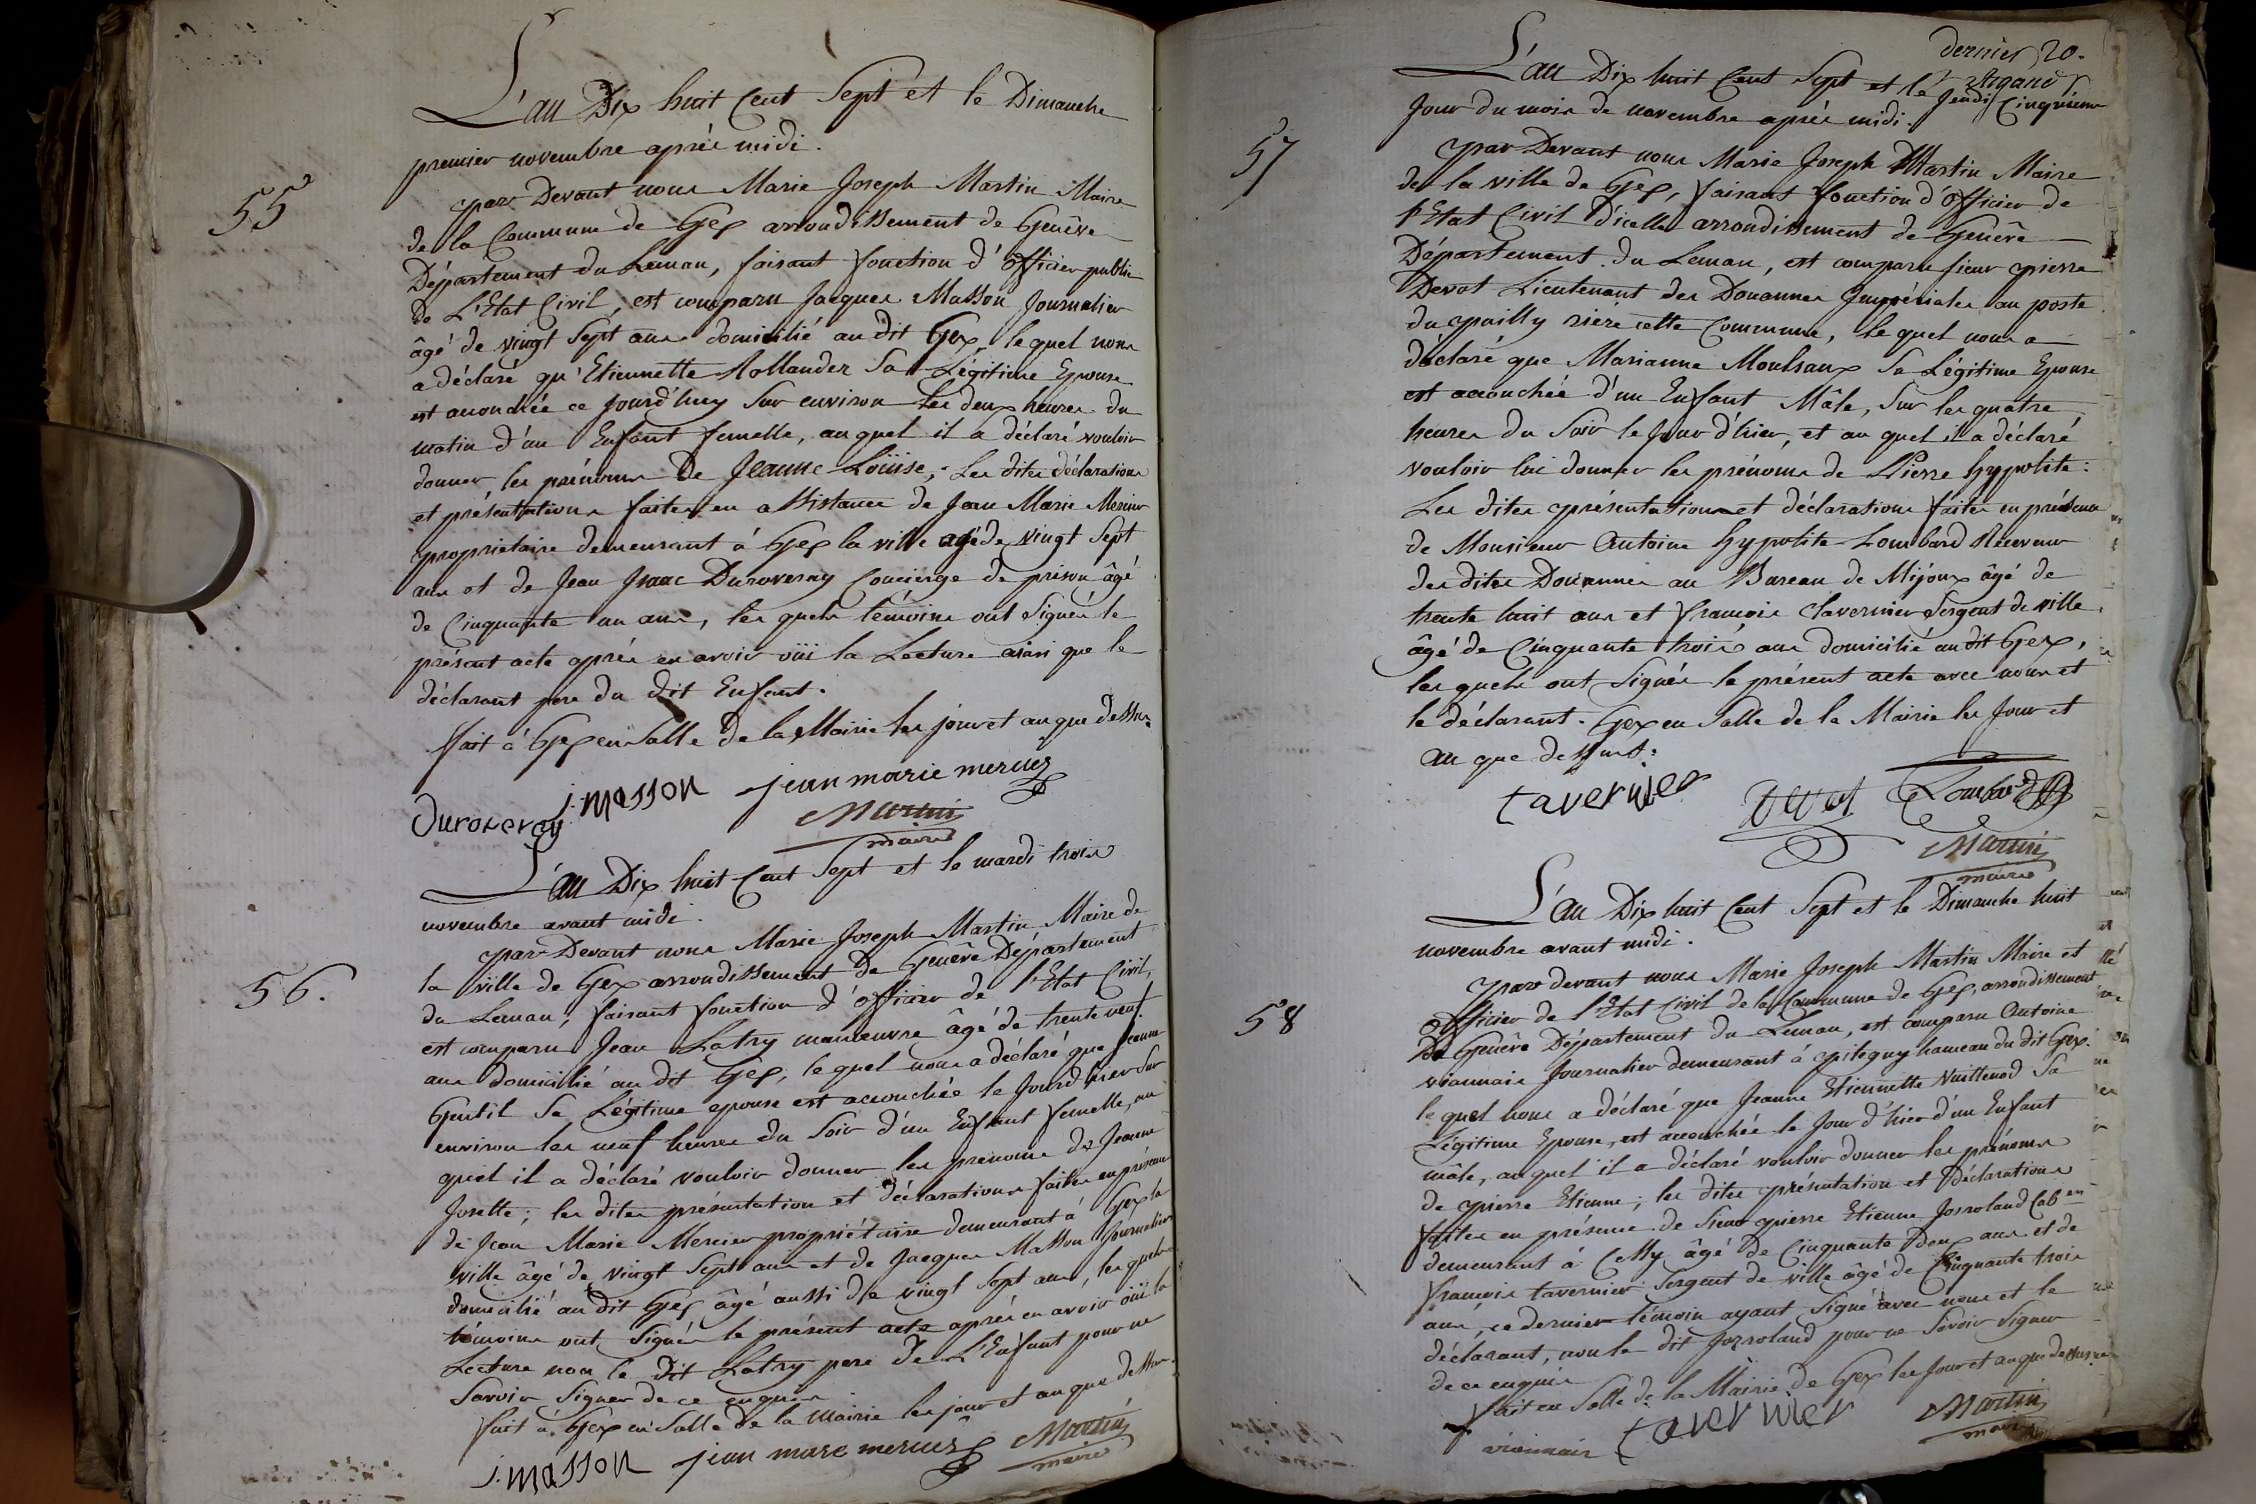 L'an Dix huit Cent Sept et le Dimanche
premier novembre après midi.
55
par Devant nous Marie Joseph Martin Maire
de la Commune de Gex arrondissement de Genève
Département du Leman, faisant fonction d'officier public
de L'Etat Civil, est comparu Jacques Masson Journalier
âgé de vingt Sept ans domicilié au dit Gex, lequel nous
a déclaré qu'Etiennette Rollandez Sa Légitime Epouse
est accouchée ce jourd'huy Sur environ les deux heures du
matin d'un Enfant femelle, auquel il a déclaré vouloir
donner les prénoms de Jeanne Loüise, Les dites déclarations
et présentations faites en assistance de Jean Marie Mercier
propriétaire demeurant à Gex la ville agé de vingt Sept
ans et de Jean Isaac Duroveray Concierge de prison âgé
de Cinquante un ans, les quels témoins ont Signés le
présent acte après en avoir oüi la Lecture ainsi que le
déclarant pere du dit Enfant.
fait à Gex en Salle de la Mairie les jour et an que dessus.
Duroveray j. masson jean marie mercier
Martin
maire
L'an Dix huit Cent Sept et le mardi trois
novembre avant midi.
56.
par Devant nous Marie Joseph Martin Maire de
la ville de Gex arrondissement de Genêve Département
du Leman, faisant fonction d'officier de l'Etat Civil,
est comparu Jean Latry manoeuvre âgé de trente neuf
ans domicilié au dit Gex, lequel nous a déclaré que Jeanne
Gentil Sa Légitime epouse est accouchée le Jourd'hier Sur
environ les neuf heures du Soir d'un Enfant femelle, au
quel il a déclaré vouloir donner les prenoms de Jeanne
Josette; les dites présentation et déclarations faites en présence
de Jean Marie Mercier propriétaire demeurant à Gex la
ville âgé de vingt Sept ans et de Jacques Masson Journalier
domicilié au dit Gex âgé aussi de vingt Sept ans, les quels
témoins ont Signés le présent acte après en avoir oüi la
Lecture non le dit Latry pere de L'Enfant pour ne
Savoir Signer de ce enquis
fait à Gex en Salle de la Mairie les jour et an que dessus.
j. masson jean mare mercier Martin
maire
dernier 20.
Argand
L'an Dix huit Cent Sept et le Jeudi Cinquième
Jour du mois de novembre après midi.
57
par Devant nous Marie Joseph Martin Maire
de la ville de Gex, faisant fonction d'officier de
l'Etat Civil d'icelle arrondissement de Genêve
Département du Leman, est comparu sieur pierre
Devot Lieutenant des Douannes Impériales au poste
du pailly riere cette Commune, le quel nous a
déclaré que Marianne Moulsaux Sa Légitime Epouse
est accouchée d'un Enfant Mâle, Sur les quatre
heures du Soir le Jour d'hier, et au quel il a déclaré
vouloir lui donner les prénoms de Pierre hypolite:
Les dites présentations et déclarations faites en présence
de Monsieur Antoine hypolite Lombard Receveur
des dites Douannes au Bureau de Mijoux âgé de
trente huit ans et françois Tavernier Sergent de ville
âgé de Cinquante trois ans domicilié au dit Gex,
les quels ont Signés le présent acte avec nous et
le déclarant. Gex en Salle de la Mairie les Jour et
an que dessus:
tavernier Devot Lombard
Martin
maire
L'an Dix huit Cent Sept et le Dimanche huit
novembre avant midi.
58
par devant nous Marie Joseph Martin Maire et
officier de l'Etat Civil de la Commune de Gex, arrondissement
de Genêve Département du Leman, est comparu Antoine
vionnais Journalier demeurant à pitegny hameau du dit Gex.
le quel nous a déclaré que Jeanne Etiennette Vuittenod Sa
Légitime Epouse, est accouchée le Jour d'hier d'un Enfant
mâle, au quel il a déclaré vouloir donner les prénoms
de pierre Etienne; les dites présentation et Déclarations
faites en présence de Sieur pierre Etienne Josroland Cab.en
demeurant à Cessy âgé de Cinquante deux ans et de
françois tavernier Sergent de ville âgé de Cinquante trois
ans, ce dernier témoin ayant Signé avec nous et le
déclarant, non le dit Josroland pour ne Savoir Signer
de ce enquis
fait en Salle de la Mairie de Gex les Jour et an que dessus
vionnais tavernier Martin
maire